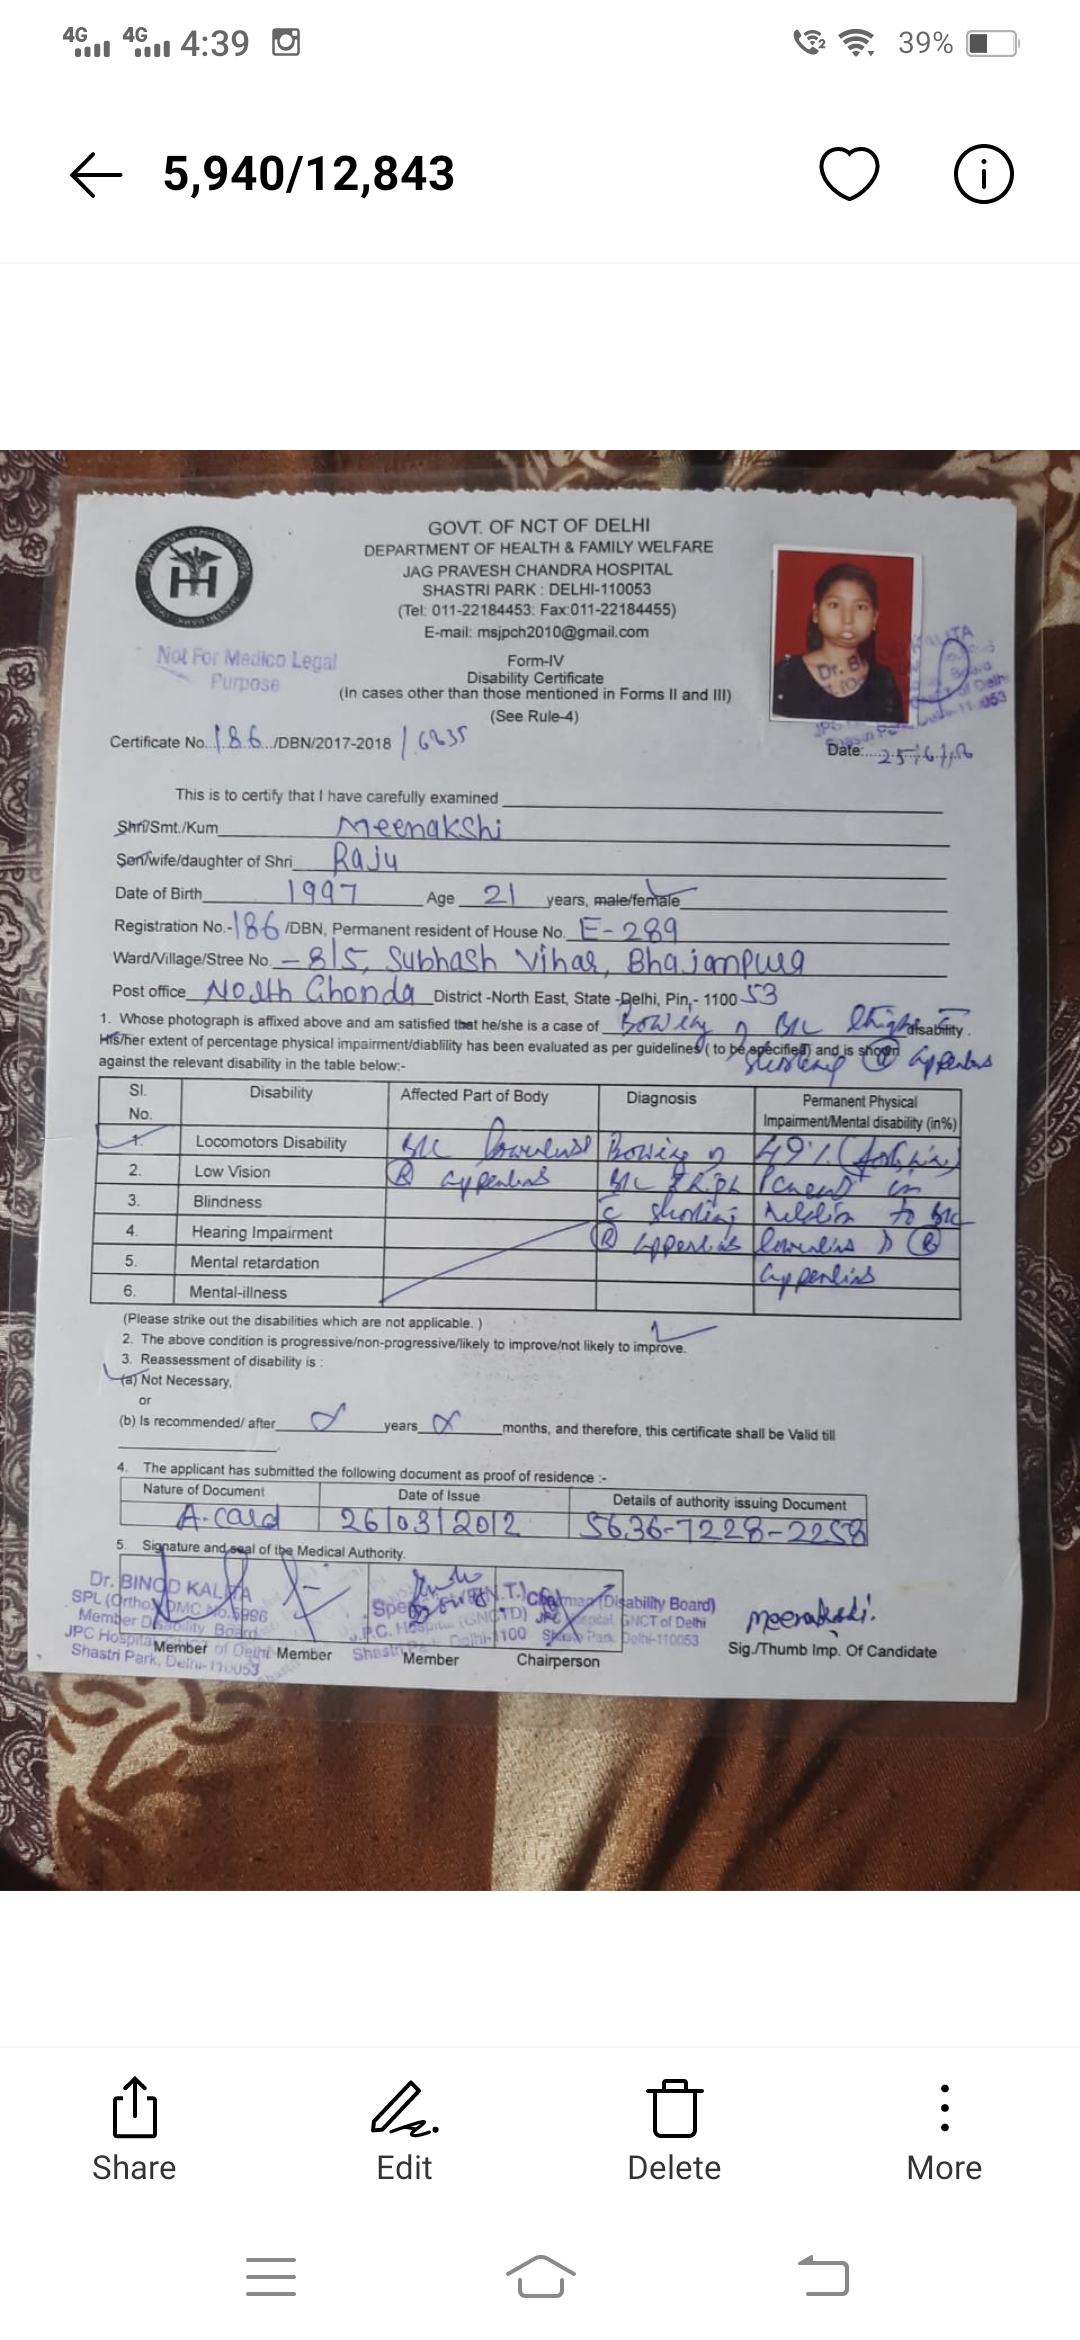 4G 4G 4:39 39%
5,940/12,843
GOVT. OF NCT OF DELHI
DEPARTMENT OF HEALTH & FAMILY WELFARE
JAG PRAVESH CHANDRA HOSPITAL
SHASTRI PARK : DELHI-110053
(Tel: 011-22184453: Fax:011-22184455)
E-mail: msjpch2010@gmail.com
Not For Medico Legal
Purpose
Form-IV
Disability Certificate
(In cases other than those mentioned in Forms II and III)
(See Rule-4)
Certificate No..186../DBN/2017-2018 / 6235
Date:
This is to certify that I have carefully examined
Shri/Smt./Kum Meenakshi
Son/wife/daughter of Shri Raju
Date of Birth 1997 Age 21 years, male/female
Registration No.-186 /DBN, Permanent resident of House No. E-289
Ward/Village/Stree No. -8/5, Subhash Vihar, Bhajanpura
Post office North Ghonda District -North East, State -Delhi, Pin,- 1100 53
1. Whose photograph is affixed above and am satisfied that he/she is a case of Bowing of B/L thigh disability.
His/her extent of percentage physical impairment/diablility has been evaluated as per guidelines ( to be specified) and is shown
against the relevant disability in the table below:-
Sl. No. Disability Affected Part of Body Diagnosis Permanent Physical Impairment/Mental disability (in%)
1. Locomotors Disability B/L Bowing of 49%
2. Low Vision B/L thigh
3. Blindness
4. Hearing Impairment
5. Mental retardation
6. Mental-illness
(Please strike out the disabilities which are not applicable. )
2. The above condition is progressive/non-progressive/likely to improve/not likely to improve.
3. Reassessment of disability is :
(a) Not Necessary,
or
(b) Is recommended/ after years months, and therefore, this certificate shall be Valid till
4. The applicant has submitted the following document as proof of residence :-
Nature of Document Date of Issue Details of authority issuing Document
A-card 26/03/2012 5636-7228-2258
5. Signature and seal of the Medical Authority.
Dr. BINOD KALITA
SPL (Ortho) DMC No.
Member Disability Board
JPC Hospital of Delhi
Shastri Park, Delhi-110053
(Disability Board)
GNCT of Delhi
Shastri Park Delhi-110053
Member Member Member Chairperson
Meenakshi.
Sig./Thumb Imp. Of Candidate
Share Edit Delete More